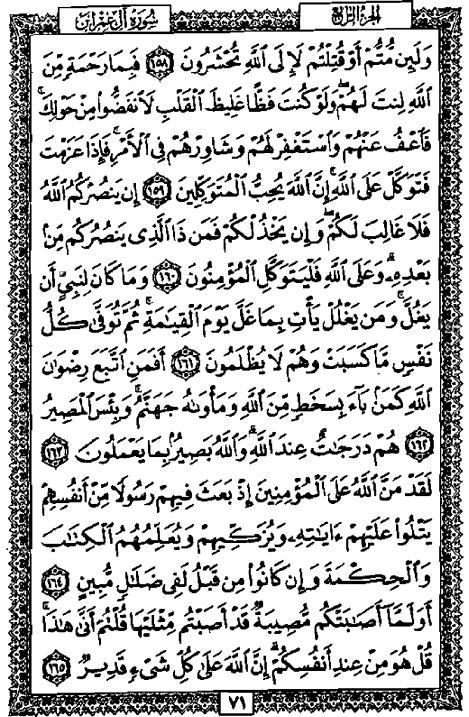 سُورَةُ آلِ عِمْرَان
الجُزْءُ الرَّابِعُ
وَلَئِن مُّتُّمْ أَوْ قُتِلْتُمْ لَإِلَى اللَّهِ تُحْشَرُونَ ١٥٨ فَبِمَا رَحْمَةٍ مِّنَ
اللَّهِ لِنتَ لَهُمْ وَلَوْ كُنتَ فَظًّا غَلِيظَ الْقَلْبِ لَانفَضُّوا مِنْ حَوْلِكَ
فَاعْفُ عَنْهُمْ وَاسْتَغْفِرْ لَهُمْ وَشَاوِرْهُمْ فِي الْأَمْرِ فَإِذَا عَزَمْتَ
فَتَوَكَّلْ عَلَى اللَّهِ إِنَّ اللَّهَ يُحِبُّ الْمُتَوَكِّلِينَ ١٥٩ إِن يَنصُرْكُمُ اللَّهُ
فَلَا غَالِبَ لَكُمْ وَإِن يَخْذُلْكُمْ فَمَن ذَا الَّذِي يَنصُرُكُم مِّن
بَعْدِهِ وَعَلَى اللَّهِ فَلْيَتَوَكَّلِ الْمُؤْمِنُونَ ١٦٠ وَمَا كَانَ لِنَبِيٍّ أَن
يَغُلَّ وَمَن يَغْلُلْ يَأْتِ بِمَا غَلَّ يَوْمَ الْقِيَٰمَةِ ثُمَّ تُوَفَّىٰ كُلُّ
نَفْسٍ مَّا كَسَبَتْ وَهُمْ لَا يُظْلَمُونَ ١٦١ أَفَمَنِ اتَّبَعَ رِضْوَٰنَ
اللَّهِ كَمَن بَاءَ بِسَخَطٍ مِّنَ اللَّهِ وَمَأْوَىٰهُ جَهَنَّمُ وَبِئْسَ الْمَصِيرُ
١٦٢ هُمْ دَرَجَٰتٌ عِندَ اللَّهِ وَاللَّهُ بَصِيرٌ بِمَا يَعْمَلُونَ ١٦٣
لَقَدْ مَنَّ اللَّهُ عَلَى الْمُؤْمِنِينَ إِذْ بَعَثَ فِيهِمْ رَسُولًا مِّنْ أَنفُسِهِمْ
يَتْلُوا عَلَيْهِمْ ءَايَٰتِهِ وَيُزَكِّيهِمْ وَيُعَلِّمُهُمُ الْكِتَٰبَ
وَالْحِكْمَةَ وَإِن كَانُوا مِن قَبْلُ لَفِي ضَلَٰلٍ مُّبِينٍ ١٦٤
أَوَلَمَّا أَصَٰبَتْكُم مُّصِيبَةٌ قَدْ أَصَبْتُم مِّثْلَيْهَا قُلْتُمْ أَنَّىٰ هَٰذَا
قُلْ هُوَ مِنْ عِندِ أَنفُسِكُمْ إِنَّ اللَّهَ عَلَىٰ كُلِّ شَيْءٍ قَدِيرٌ ١٦٥
٧١